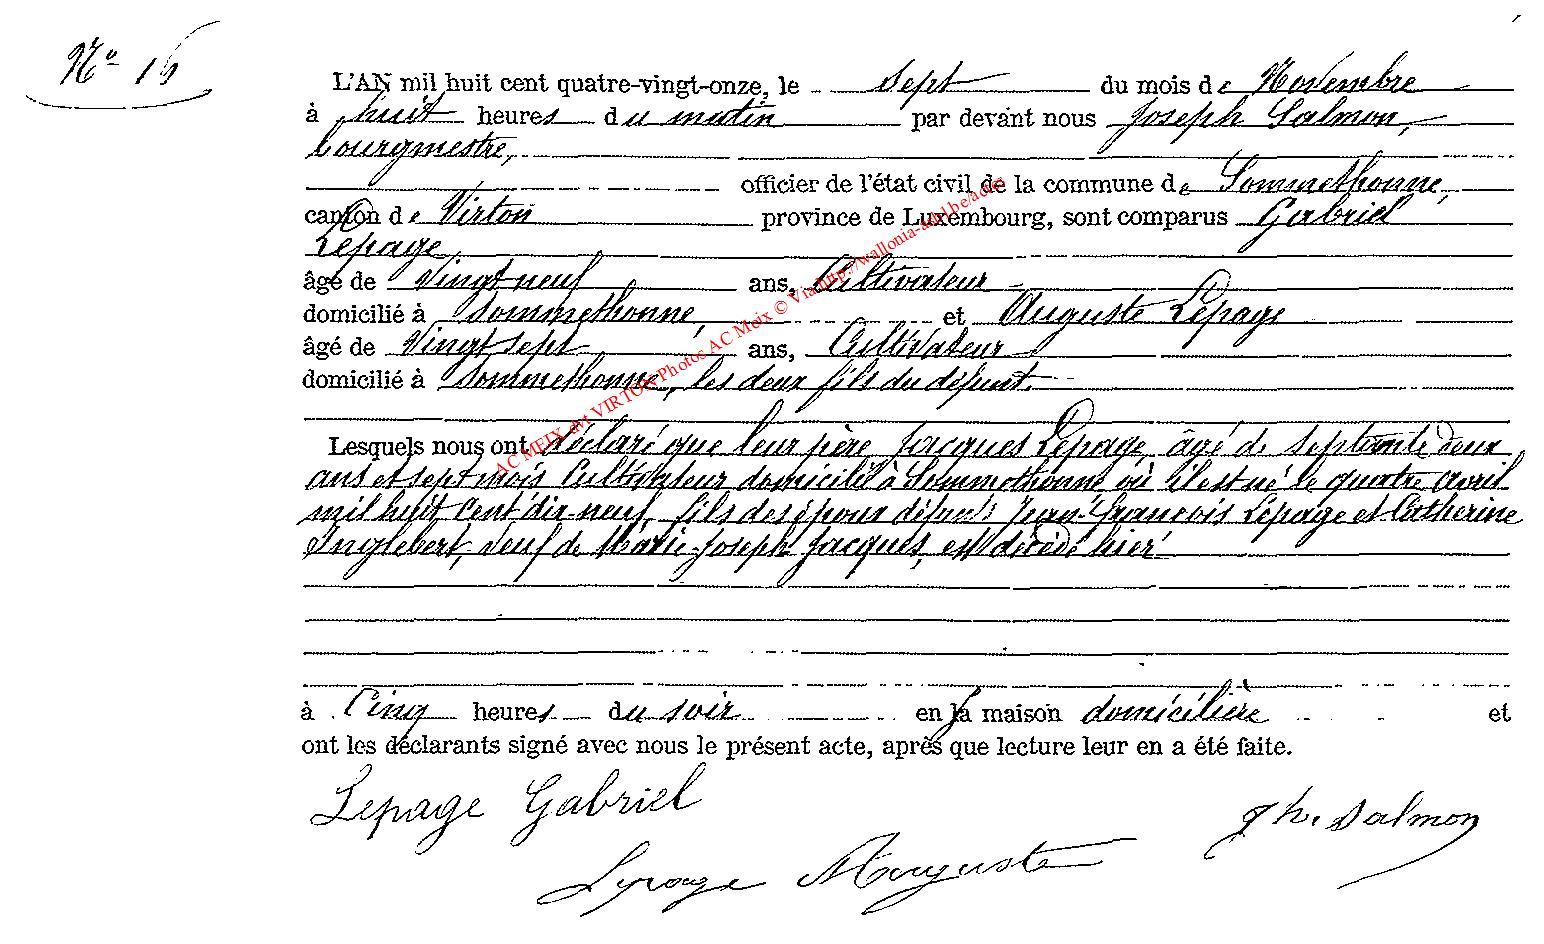 N° 16
L'AN mil huit cent quatre-vingt-onze, le sept du mois de Novembre
à huit heures du matin par devant nous Joseph Salmon,
bourgmestre,
officier de l'état civil de la commune de Sommethonne,
canton de Virton province de Luxembourg, sont comparus Gabriel
Lepage
âgé de Vingt neuf ans, Cultivateur
domicilié à Sommethonne, et Auguste Lepage
âgé de Vingt sept ans, Cultivateur
domicilié à Sommethonne, les deux fils du défunt.
Lesquels nous ont déclaré que leur père Jacques Lepage âgé de septante deux
ans et sept mois Cultivateur domicilié à Sommethonne où il est né le quatre avril
mil huit cent dix neuf, fils des époux défunts Jean-françois Lepage et Catherine
Inglebert, veuf de Marie-Joseph Jacques, est décédé hier
à Cinq heures du soir en la maison domicilière et
ont les déclarants signé avec nous le présent acte, après que lecture leur en a été faite.
Lepage Gabriel
Jph. Salmon
Lepage Auguste
AC MEIX dvt VIRTON Photos AC Meix © Via http://wallonia-asbl.be/actes